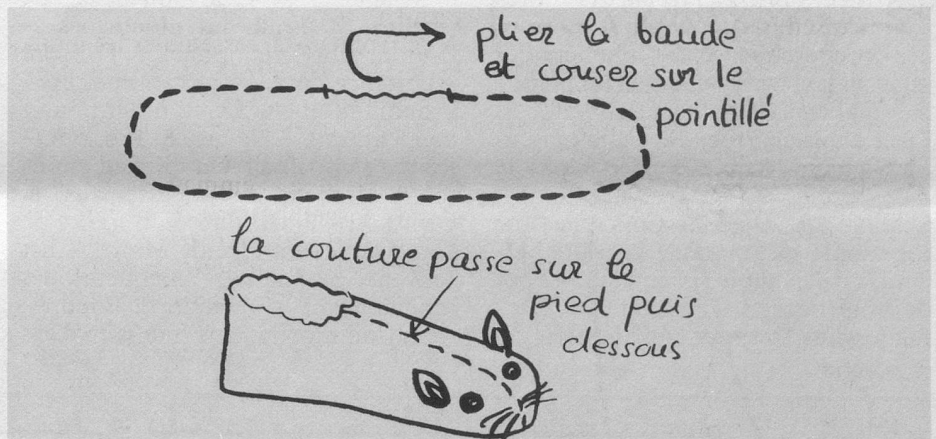 plier la bande
et couser sur le
pointillé
la couture passe sur le
pied puis
dessous